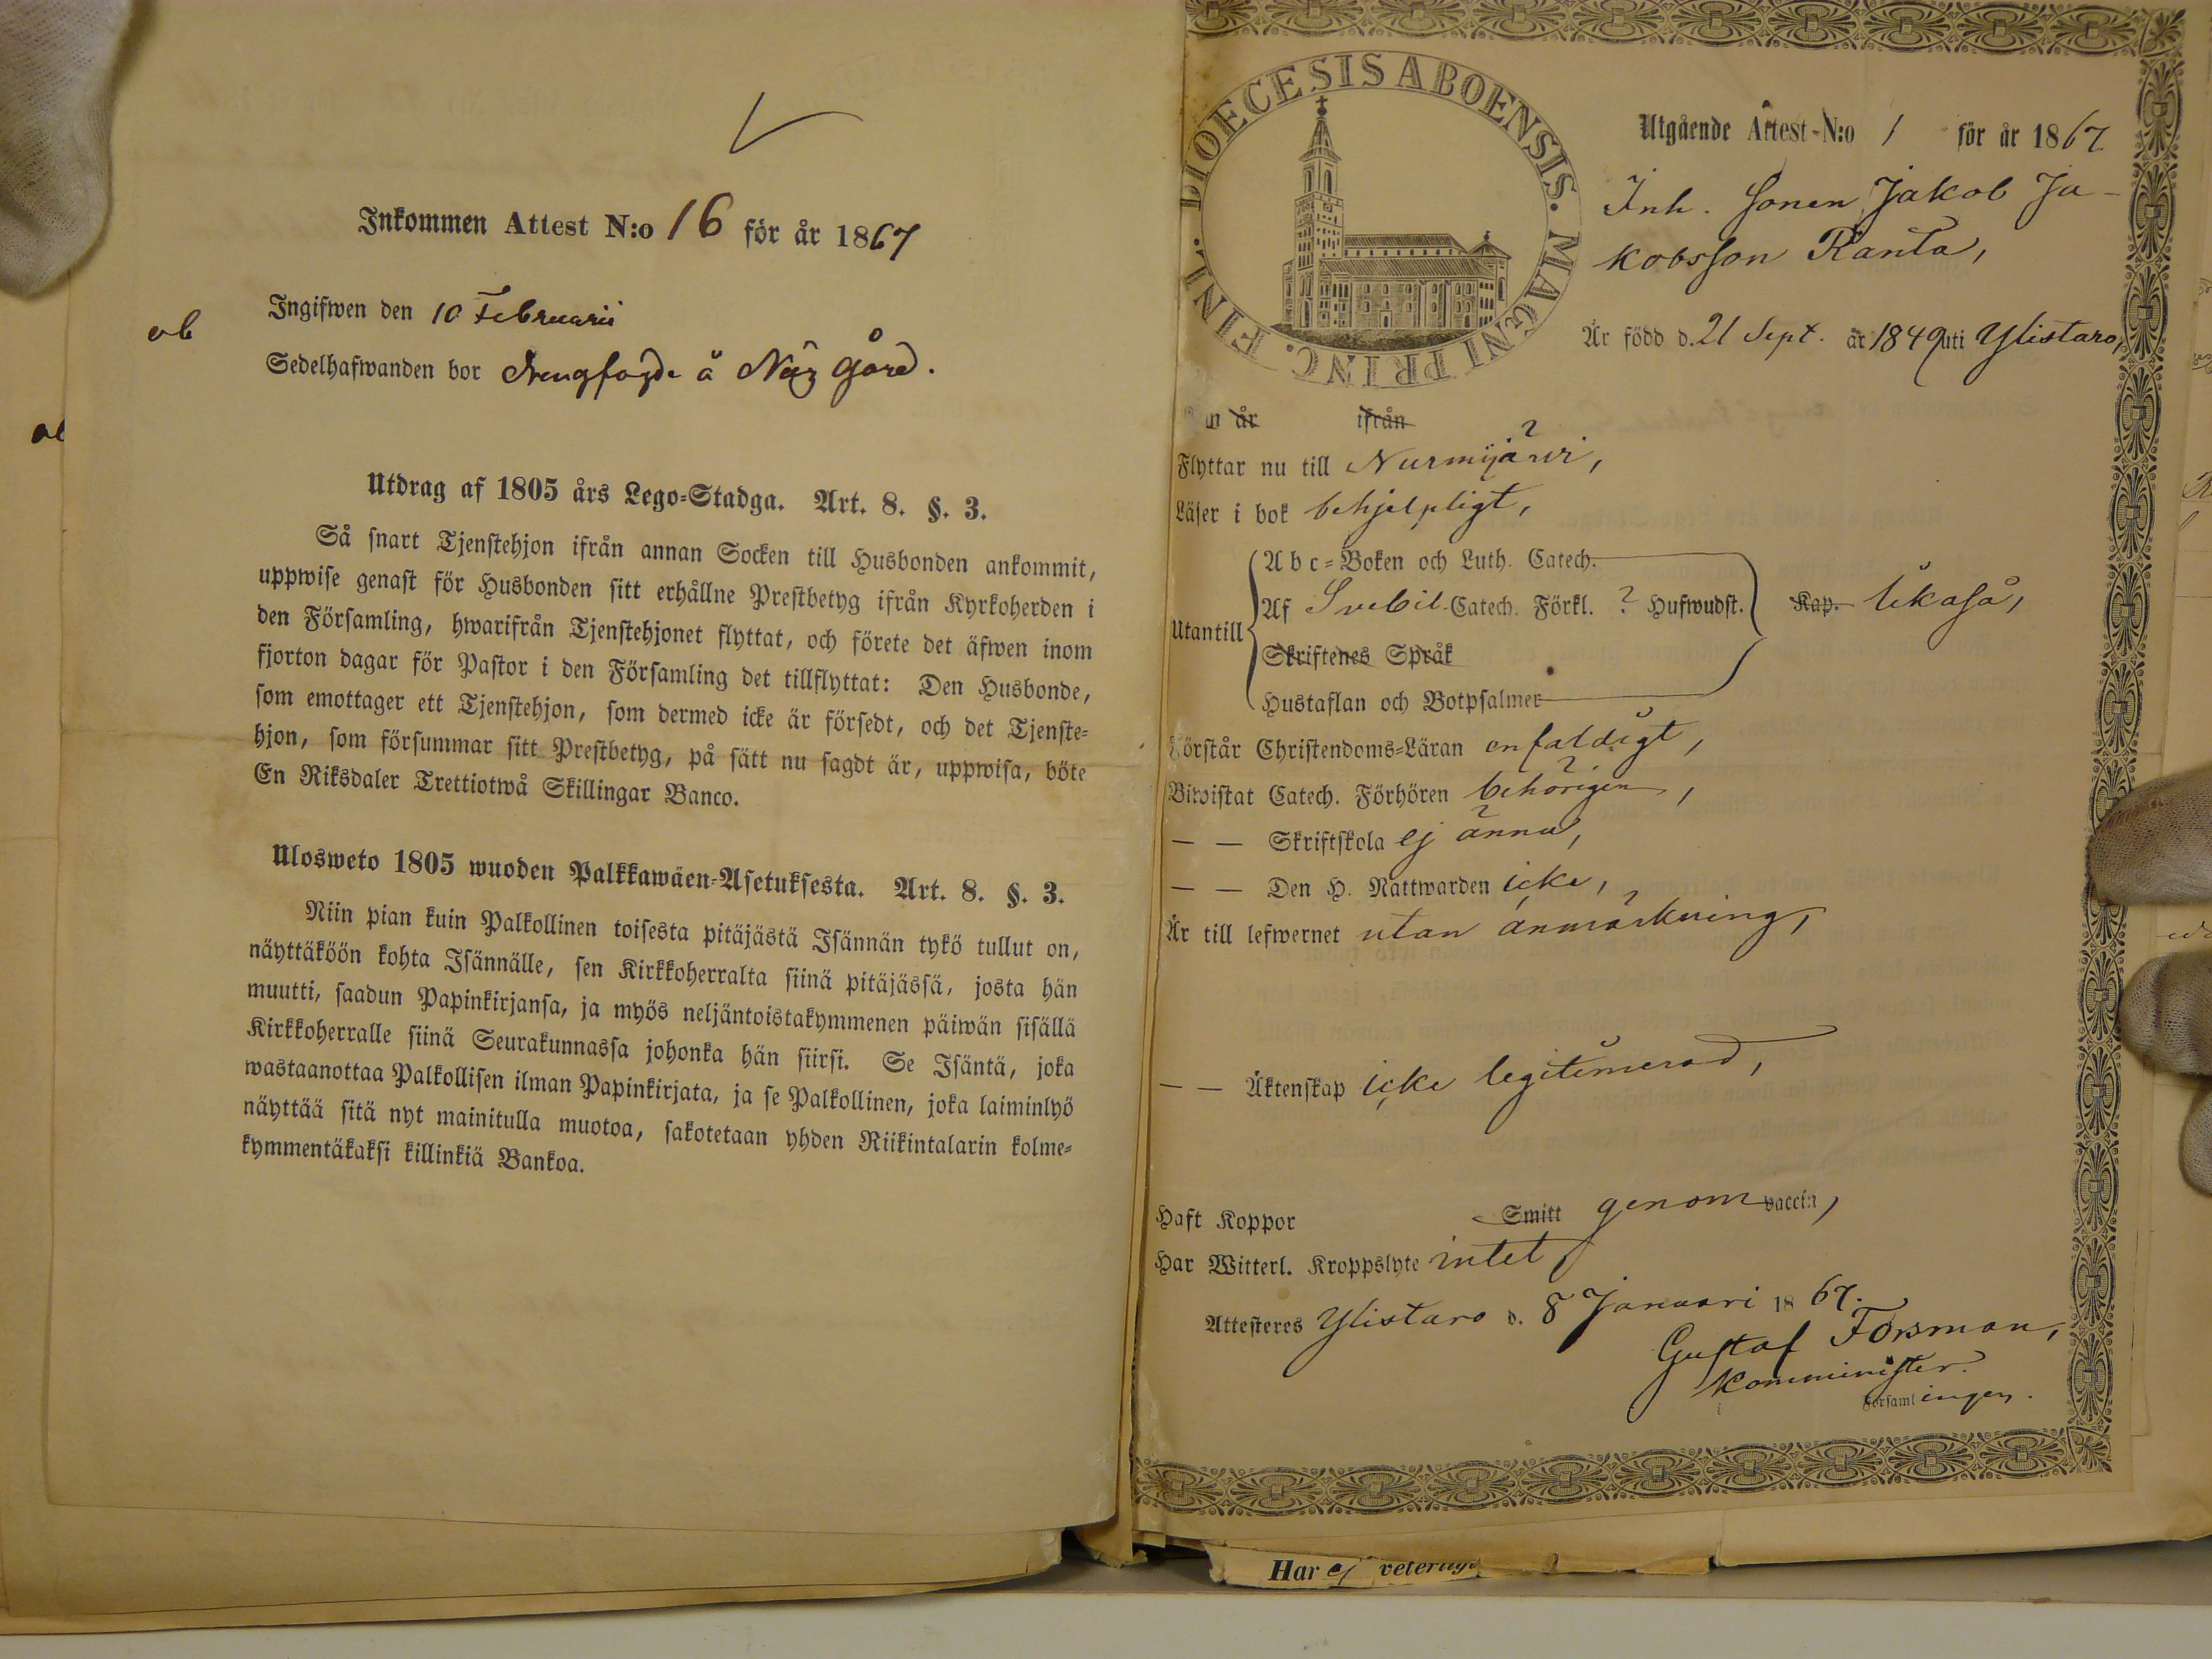 Inkommen Attest N:o 16 för år 1867
Ingifwen den 10 Februarii
ob
Sedelhafwanden bor Drengfogde å Näz gård.
Utdrag af 1805 års Lego-Stadga. Art. 8. §. 3.
Så snart Tjenstehjon ifrån annan Socken till Husbonden ankommit,
uppwise genast för Husbonden sitt erhållne Prestbetyg ifrån Kyrkoherden i
den Församling, hwarifrån Tjenstehjonet flyttat, och förete det äfwen inom
fjorton dagar för Pastor i den Församling det tillflyttat: Den Husbonde,
som emottager ett Tjenstehjon, som dermed icke är försedt, och det Tjenste-
hjon, som försummar sitt Prestbetyg, på sätt nu sagdt är, uppwisa, böte
En Riksdaler Trettiotwå Skillingar Banco.
Ulosweto 1805 wuoden Palkkawäen-Asetuksesta. Art. 8. §. 3.
Niin pian kuin Palkollinen toisesta pitäjästä Isännän tykö tullut on,
näyttäköön kohta Isännälle, sen Kirkkoherralta siinä pitäjässä, josta hän
muutti, saadun Papinkirjansa, ja myös neljäntoistakymmenen päiwän sisällä
Kirkkoherralle siinä Seurakunnassa johonka hän siirsi. Se Isäntä, joka
wastaanottaa Palkollisen ilman Papinkirjata, ja se Palkollinen, joka laiminlyö
näyttää sitä nyt mainitulla muotoa, sakotetaan yhden Riikintalarin kolme-
kymmentäkaksi killinkiä Bankoa.
DIOECESIS ABOENSIS. MAGNI PRINC. FINL.
Utgående Attest-N:o 1 för år 1867
Inh. sonen Jakob Ja-
kobsson Ranta,
Är född d. 21 Sept. år 1849 uti Ylistaro,
n år ifrån
Flyttar nu till Nurmijärvi,
Läser i bok behjelpligt,
Abc-Boken och Luth. Catech.
Af Svebil. Catech. Förkl. ? Hufwudst. Kap. likaså,
Utantill
Skriftenes Språk
Hustaflan och Botpsalmer
Förstår Christendoms-Läran enfaldigt,
Biwistat Catech. Förhören behörigen,
— — Skriftskola ej ännu,
— — Den H. Nattwarden icke,
Är till lefwernet utan anmärkning,
— — Äktenskap icke legitimerad,
Haft Koppor Smitt genom vaccin,
Har Witterl. Kroppslyte intet,
Attesteres Ylistaro d. 8 Januari 1867.
Gustaf Forsman,
Komminister.
Församlingen.
Har ej